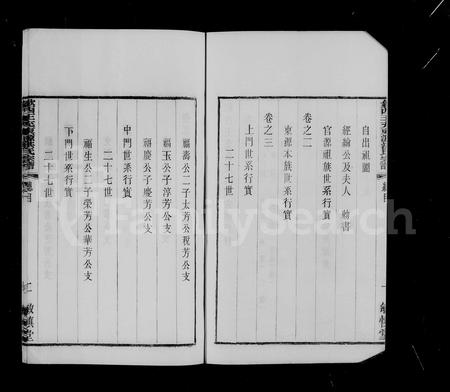 自出祖圖
經綸公及夫人 勅書
卷之一
官源祖族世系行實
卷之二
東源本族世系行實
卷之三
上門世系行實
二十七世
福壽公二子太芳公稅芳公支
福玉公子淳芳公支
福慶公子慶芳公支
中門世系行實
二十七世
福生公二子榮芳公華芳公支
下門世系行實
二十七世
總目
敏慎堂
FamilySearch